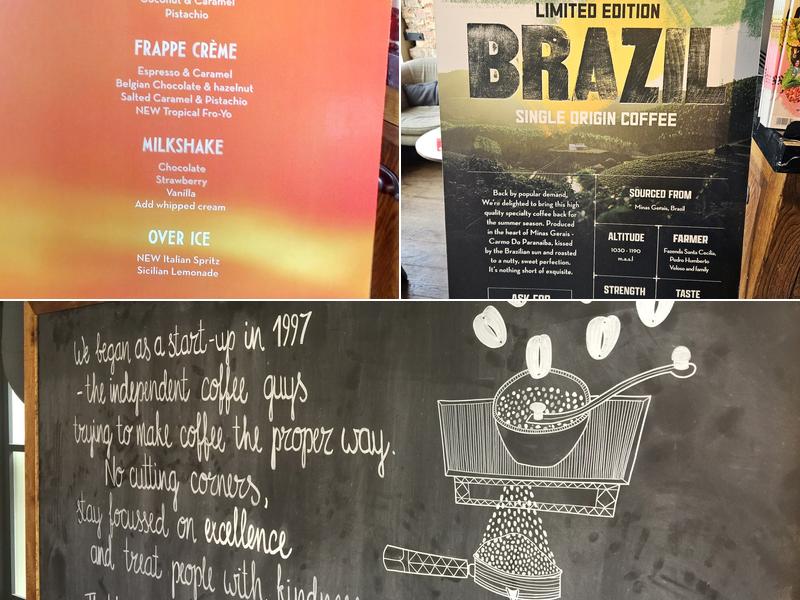 Coconut & Caramel
Pistachio
FRAPPE CRÈME
Espresso & Caramel
Belgian Chocolate & hazelnut
Salted Caramel & Pistachio
NEW Tropical Fro-Yo
MILKSHAKE
Chocolate
Strawberry
Vanilla
Add whipped cream
OVER ICE
NEW Italian Spritz
Sicilian Lemonade
LIMITED EDITION
BRAZIL
SINGLE ORIGIN COFFEE
Back by popular demand,
We're delighted to bring this high
quality specialty coffee back for
the summer season. Produced
in the heart of Minas Gerais -
Carmo Do Paranaíba, kissed
by the Brazilian sun and roasted
to a nutty, sweet perfection.
It's nothing short of exquisite.
ASK FOR
SOURCED FROM
Minas Gerais, Brazil
ALTITUDE
1030 - 1190
m.a.s.l
FARMER
Fazenda Santa Cecília,
Pedro Humberto
Veloso and family
STRENGTH
TASTE
We began as a start-up in 1997
- the independent coffee guys
trying to make coffee the proper way.
No cutting corners,
stay focussed on excellence
and treat people with kindness